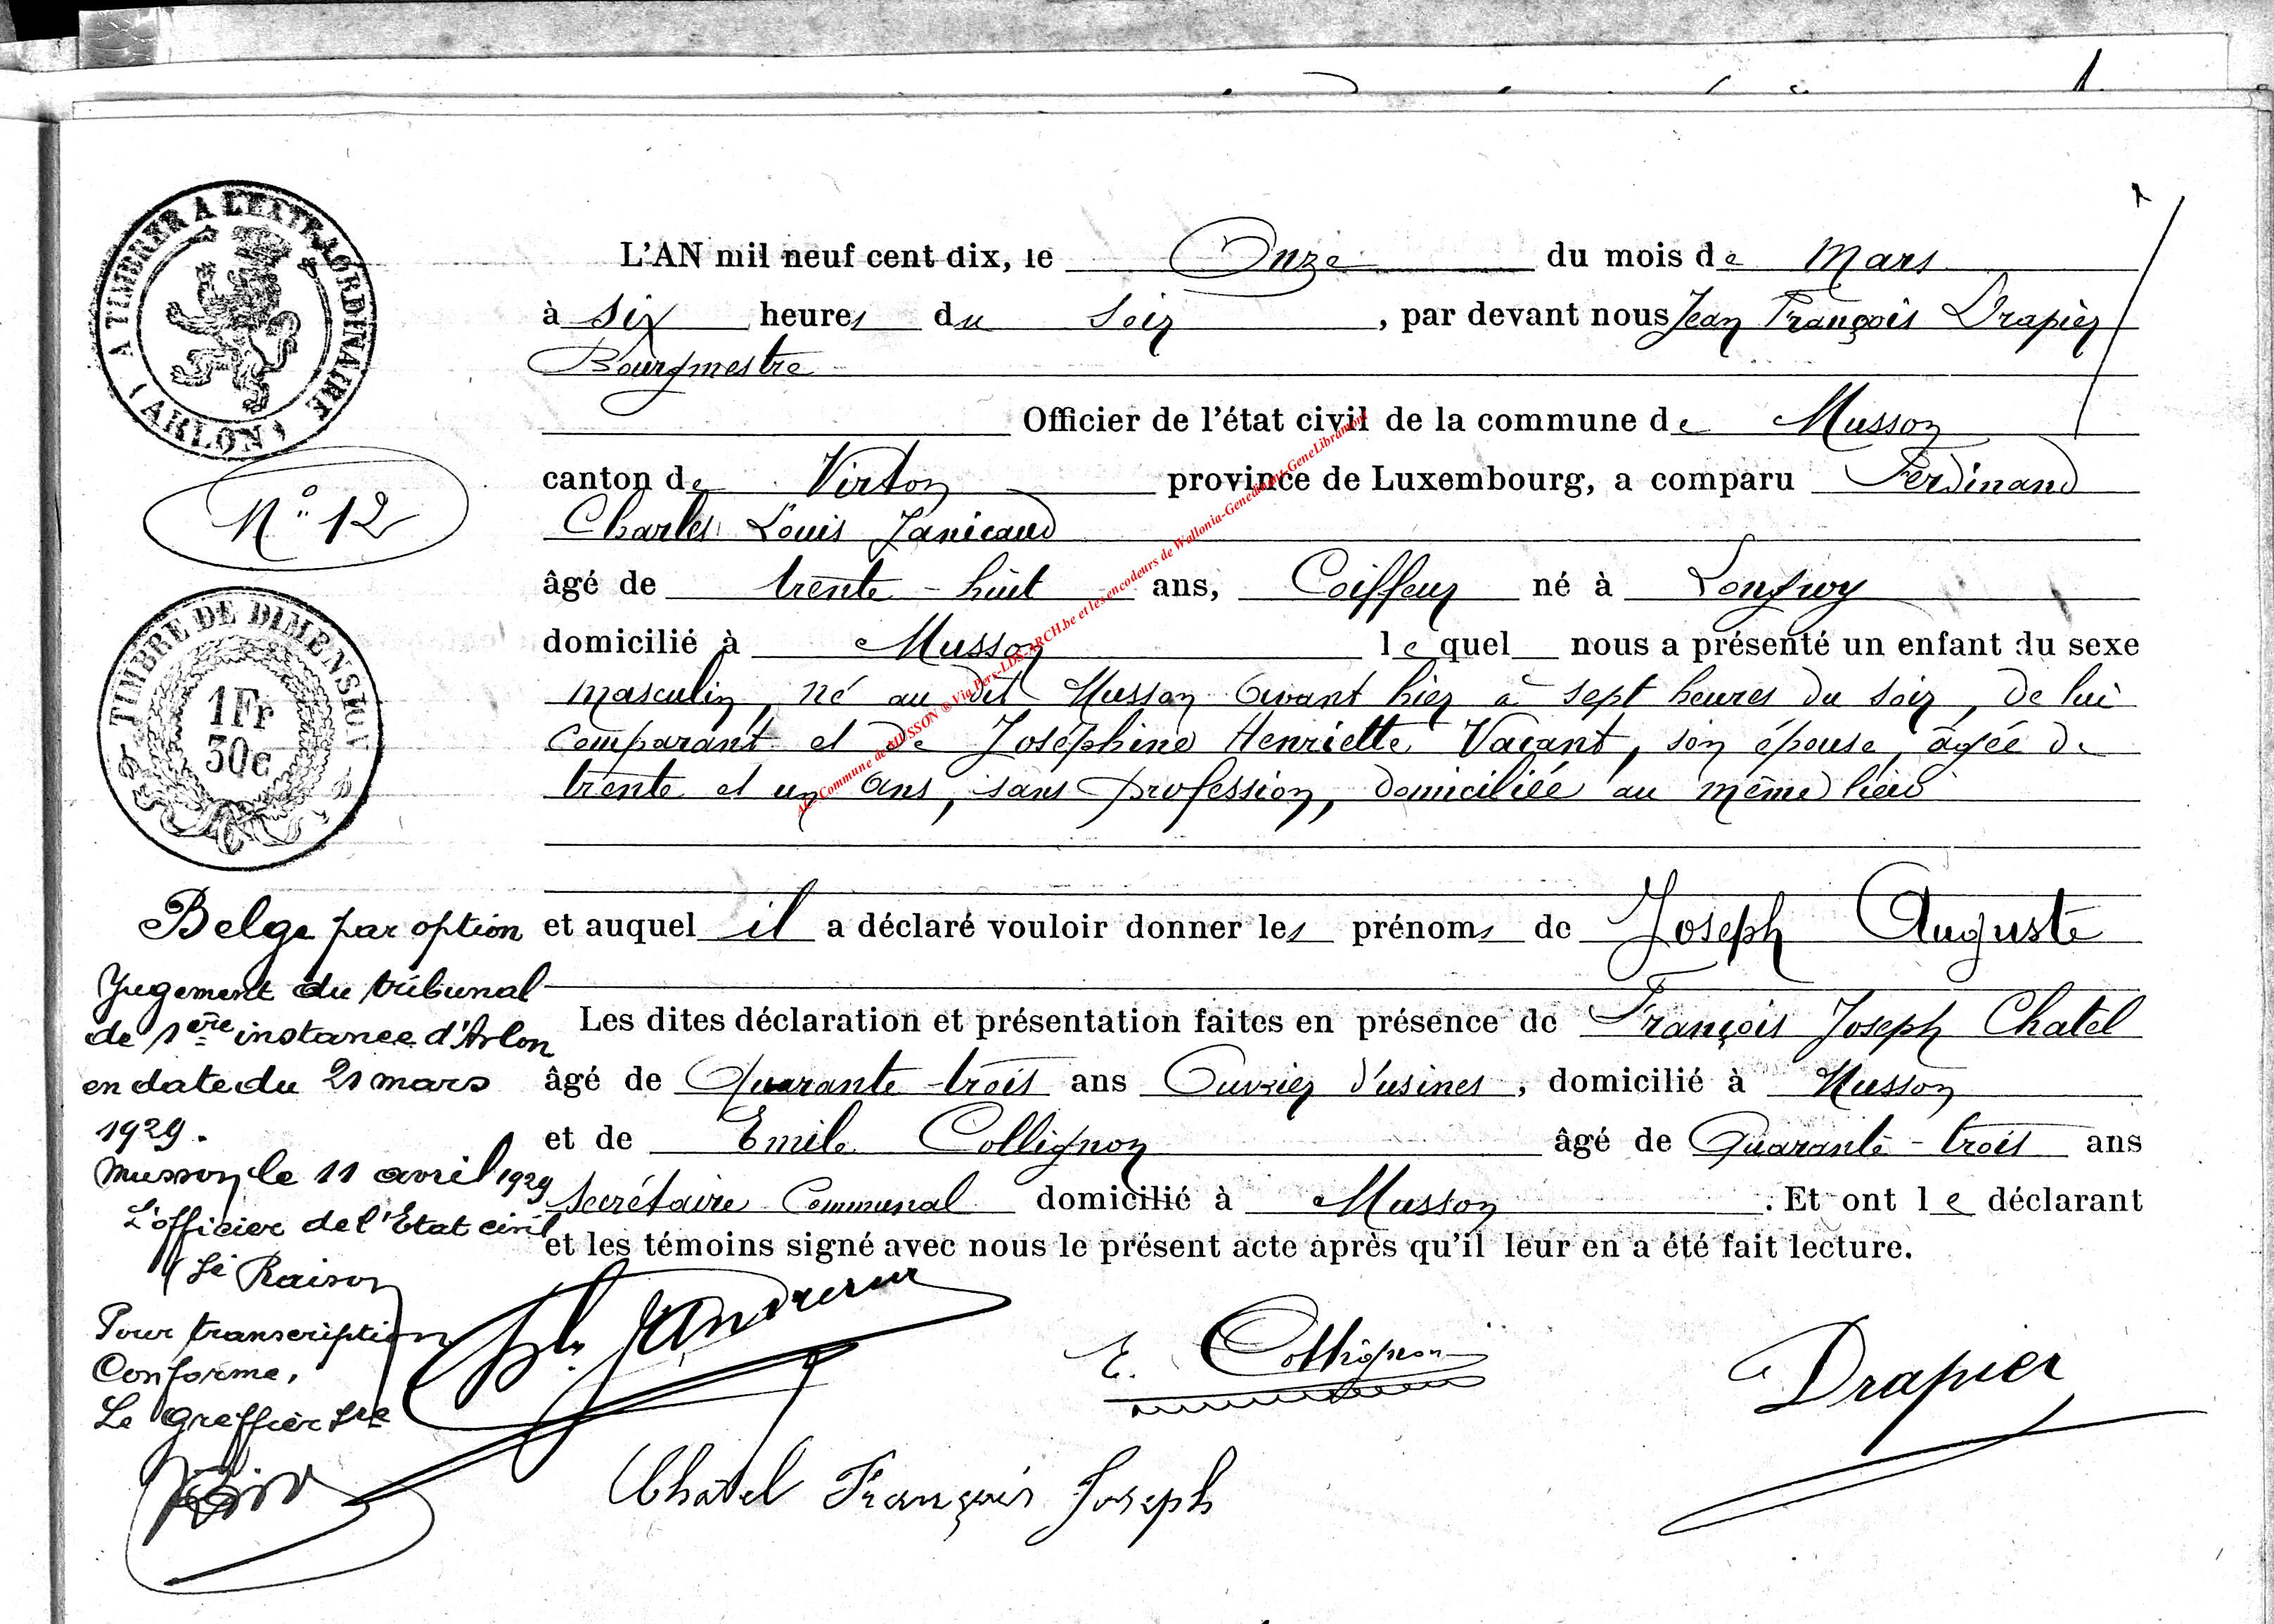 A TIMBRER A L'EXTRAORDINAIRE
(ARLON)
N° 12
TIMBRE DE DIMENSION
1 Fr
30c
L'AN mil neuf cent dix, le Onze du mois de Mars
à six heures du soir, par devant nous Jean François Drapier
Bourgmestre
Officier de l'état civil de la commune de Musson
canton de Virton province de Luxembourg, a comparu Ferdinand
Charles Louis Janicaud
âgé de trente-huit ans, Coiffeur né à Longwy
domicilié à Musson lequel nous a présenté un enfant du sexe
masculin, né au dit Musson avant hier à sept heures du soir, de lui
comparant et de Joséphine Henriette Vacant, son épouse, âgée de
trente et un ans, sans profession, domiciliée au même lieu
et auquel il a déclaré vouloir donner les prénoms de Joseph Auguste
Les dites déclaration et présentation faites en présence de François Joseph Chatel
âgé de Quarante-trois ans Ouvrier d'usines, domicilié à Musson
et de Emile Collignon âgé de Quarante-trois ans
Secrétaire Communal domicilié à Musson. Et ont le déclarant
et les témoins signé avec nous le présent acte après qu'il leur en a été fait lecture.
Belge par option
Jugement du tribunal
de 1ère instance d'Arlon
en date du 21 mars
1929.
Musson, le 11 avril 1929
L'officier de l'Etat civil
(Sé Raison
Pour transcription
Conforme,
Le Greffier
E. Collignon
Drapier
Chatel François Joseph
AC-Commune de MUSSON ® Via Pers-LDS-ARCH.be et les encodeurs de Wallonia-Genedinant-GeneLibramont